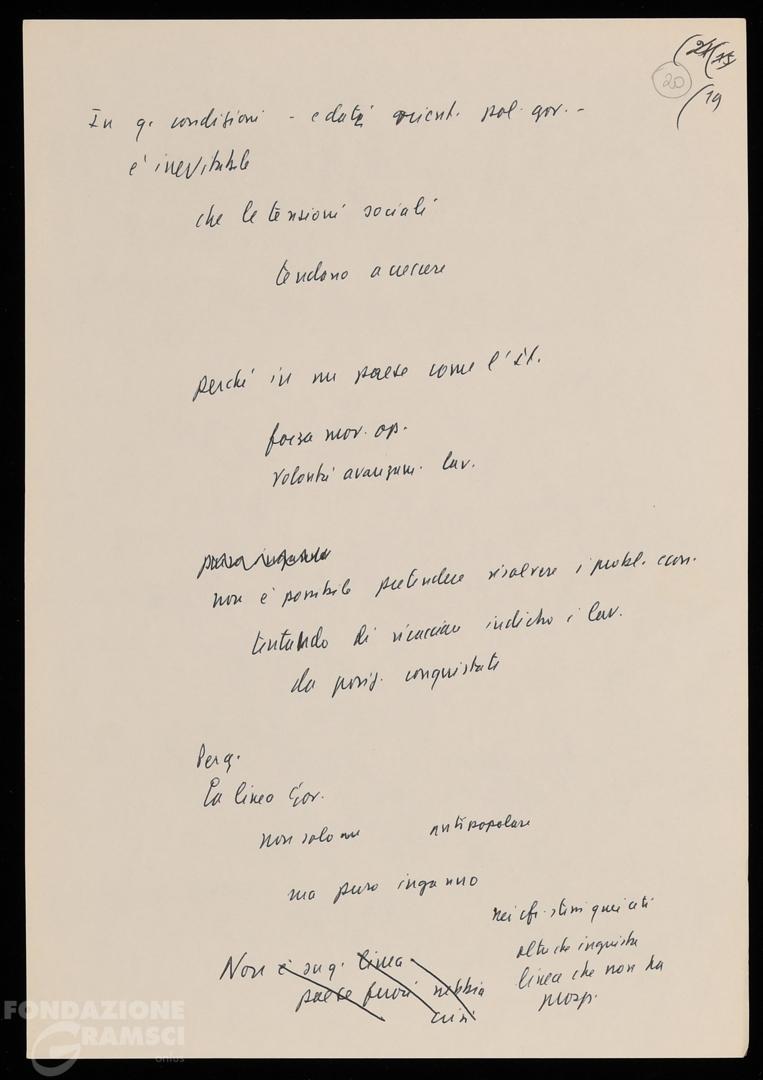 (21 (15
20
(19
In q. condizioni - e dati orient. pol. gov. -
è inevitabile
che le tensioni sociali
tendono a crescere
perché in un paese come l'It.
forza mov. op.
volontà avanzam. lav.
non è possibile pretendere risolvere i probl. econ.
tentando di ricacciare indietro i lav.
da posiz. conquistate
Per q.
La linea Gov.
non solo antipopolare
ma puro inganno
nei cfr. stessi
oltre che ingiusta
linea che non ha
prosp.
Non è su q. linea
paese fuori nebbia
crisi
FONDAZIONE
GRAMSCI
onlus